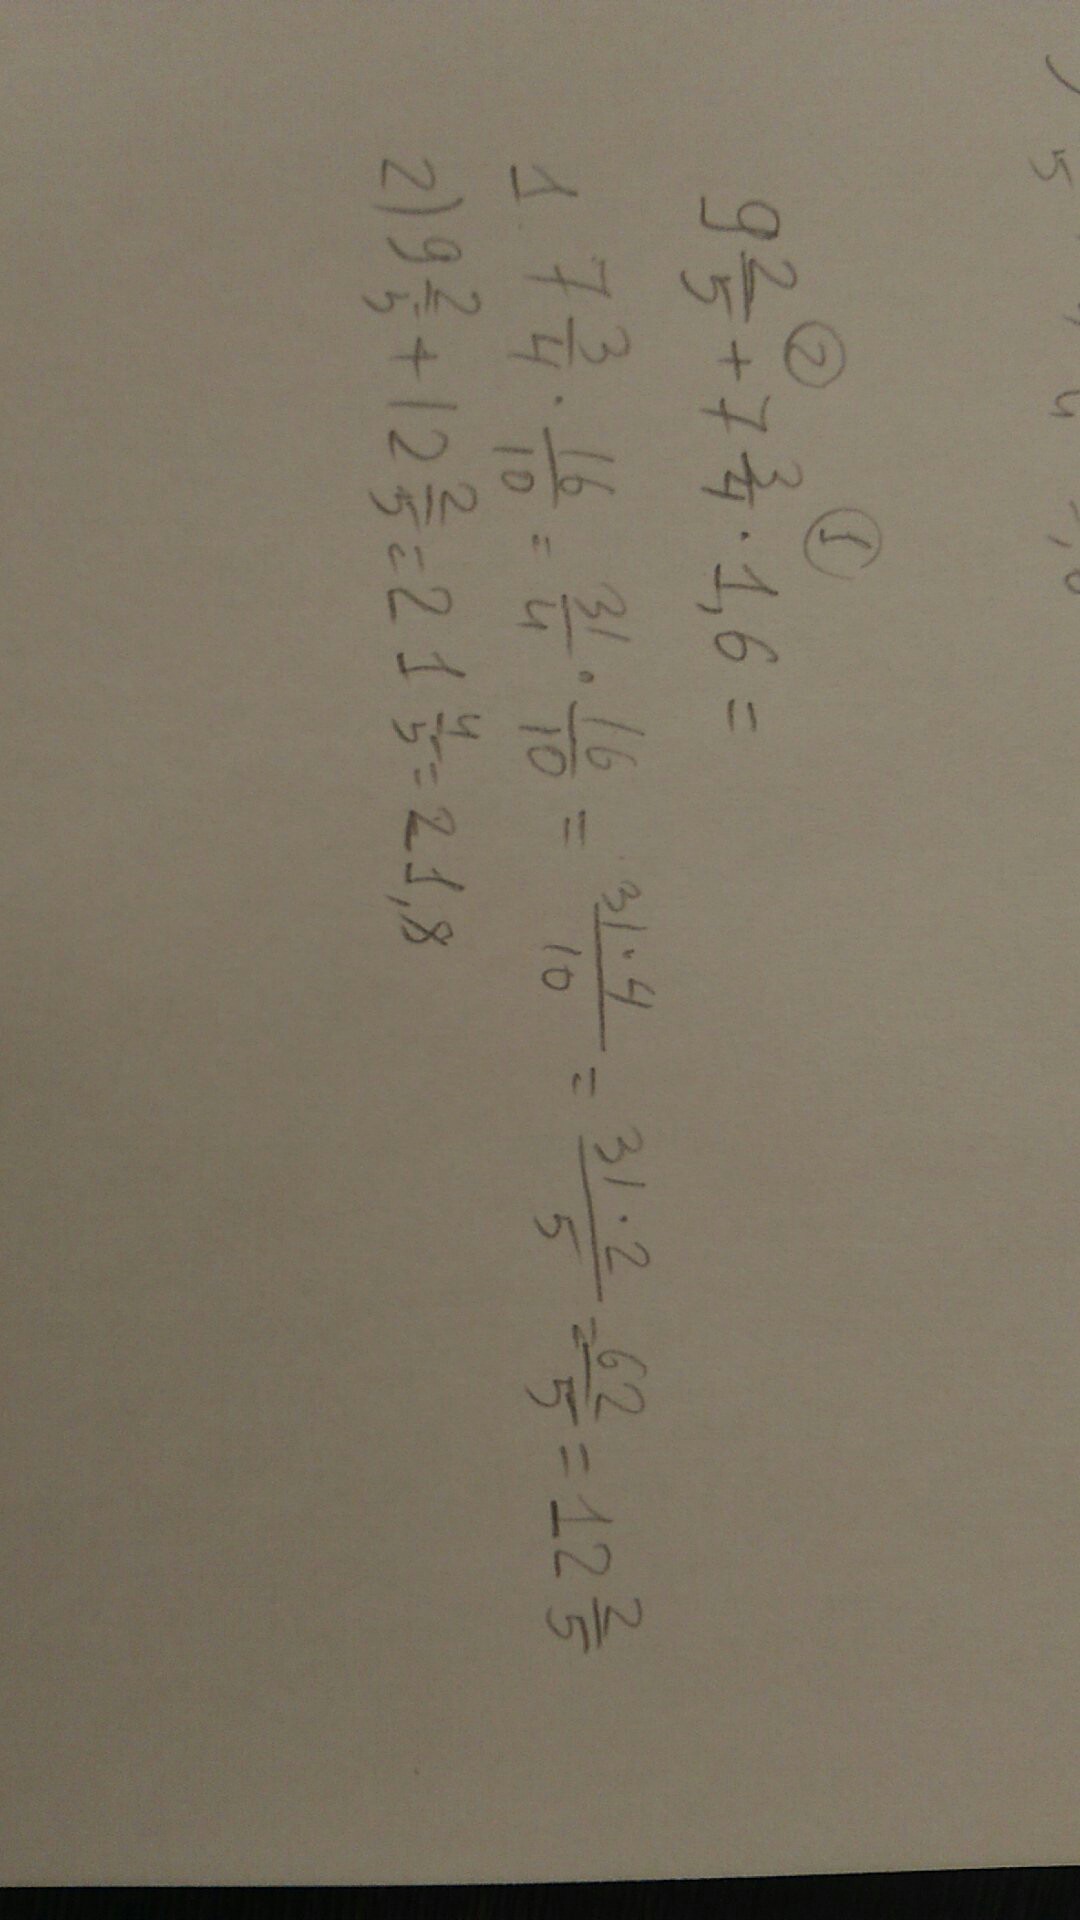 5 4
② ①
9 2/5 + 7 3/4 · 1,6 =
1 7 3/4 · 16/10 = 31/4 · 16/10 = 31·4/10 = 31·2/5 = 62/5 = 12 2/5
2) 9 2/5 + 12 2/5 = 21 4/5 = 21,8